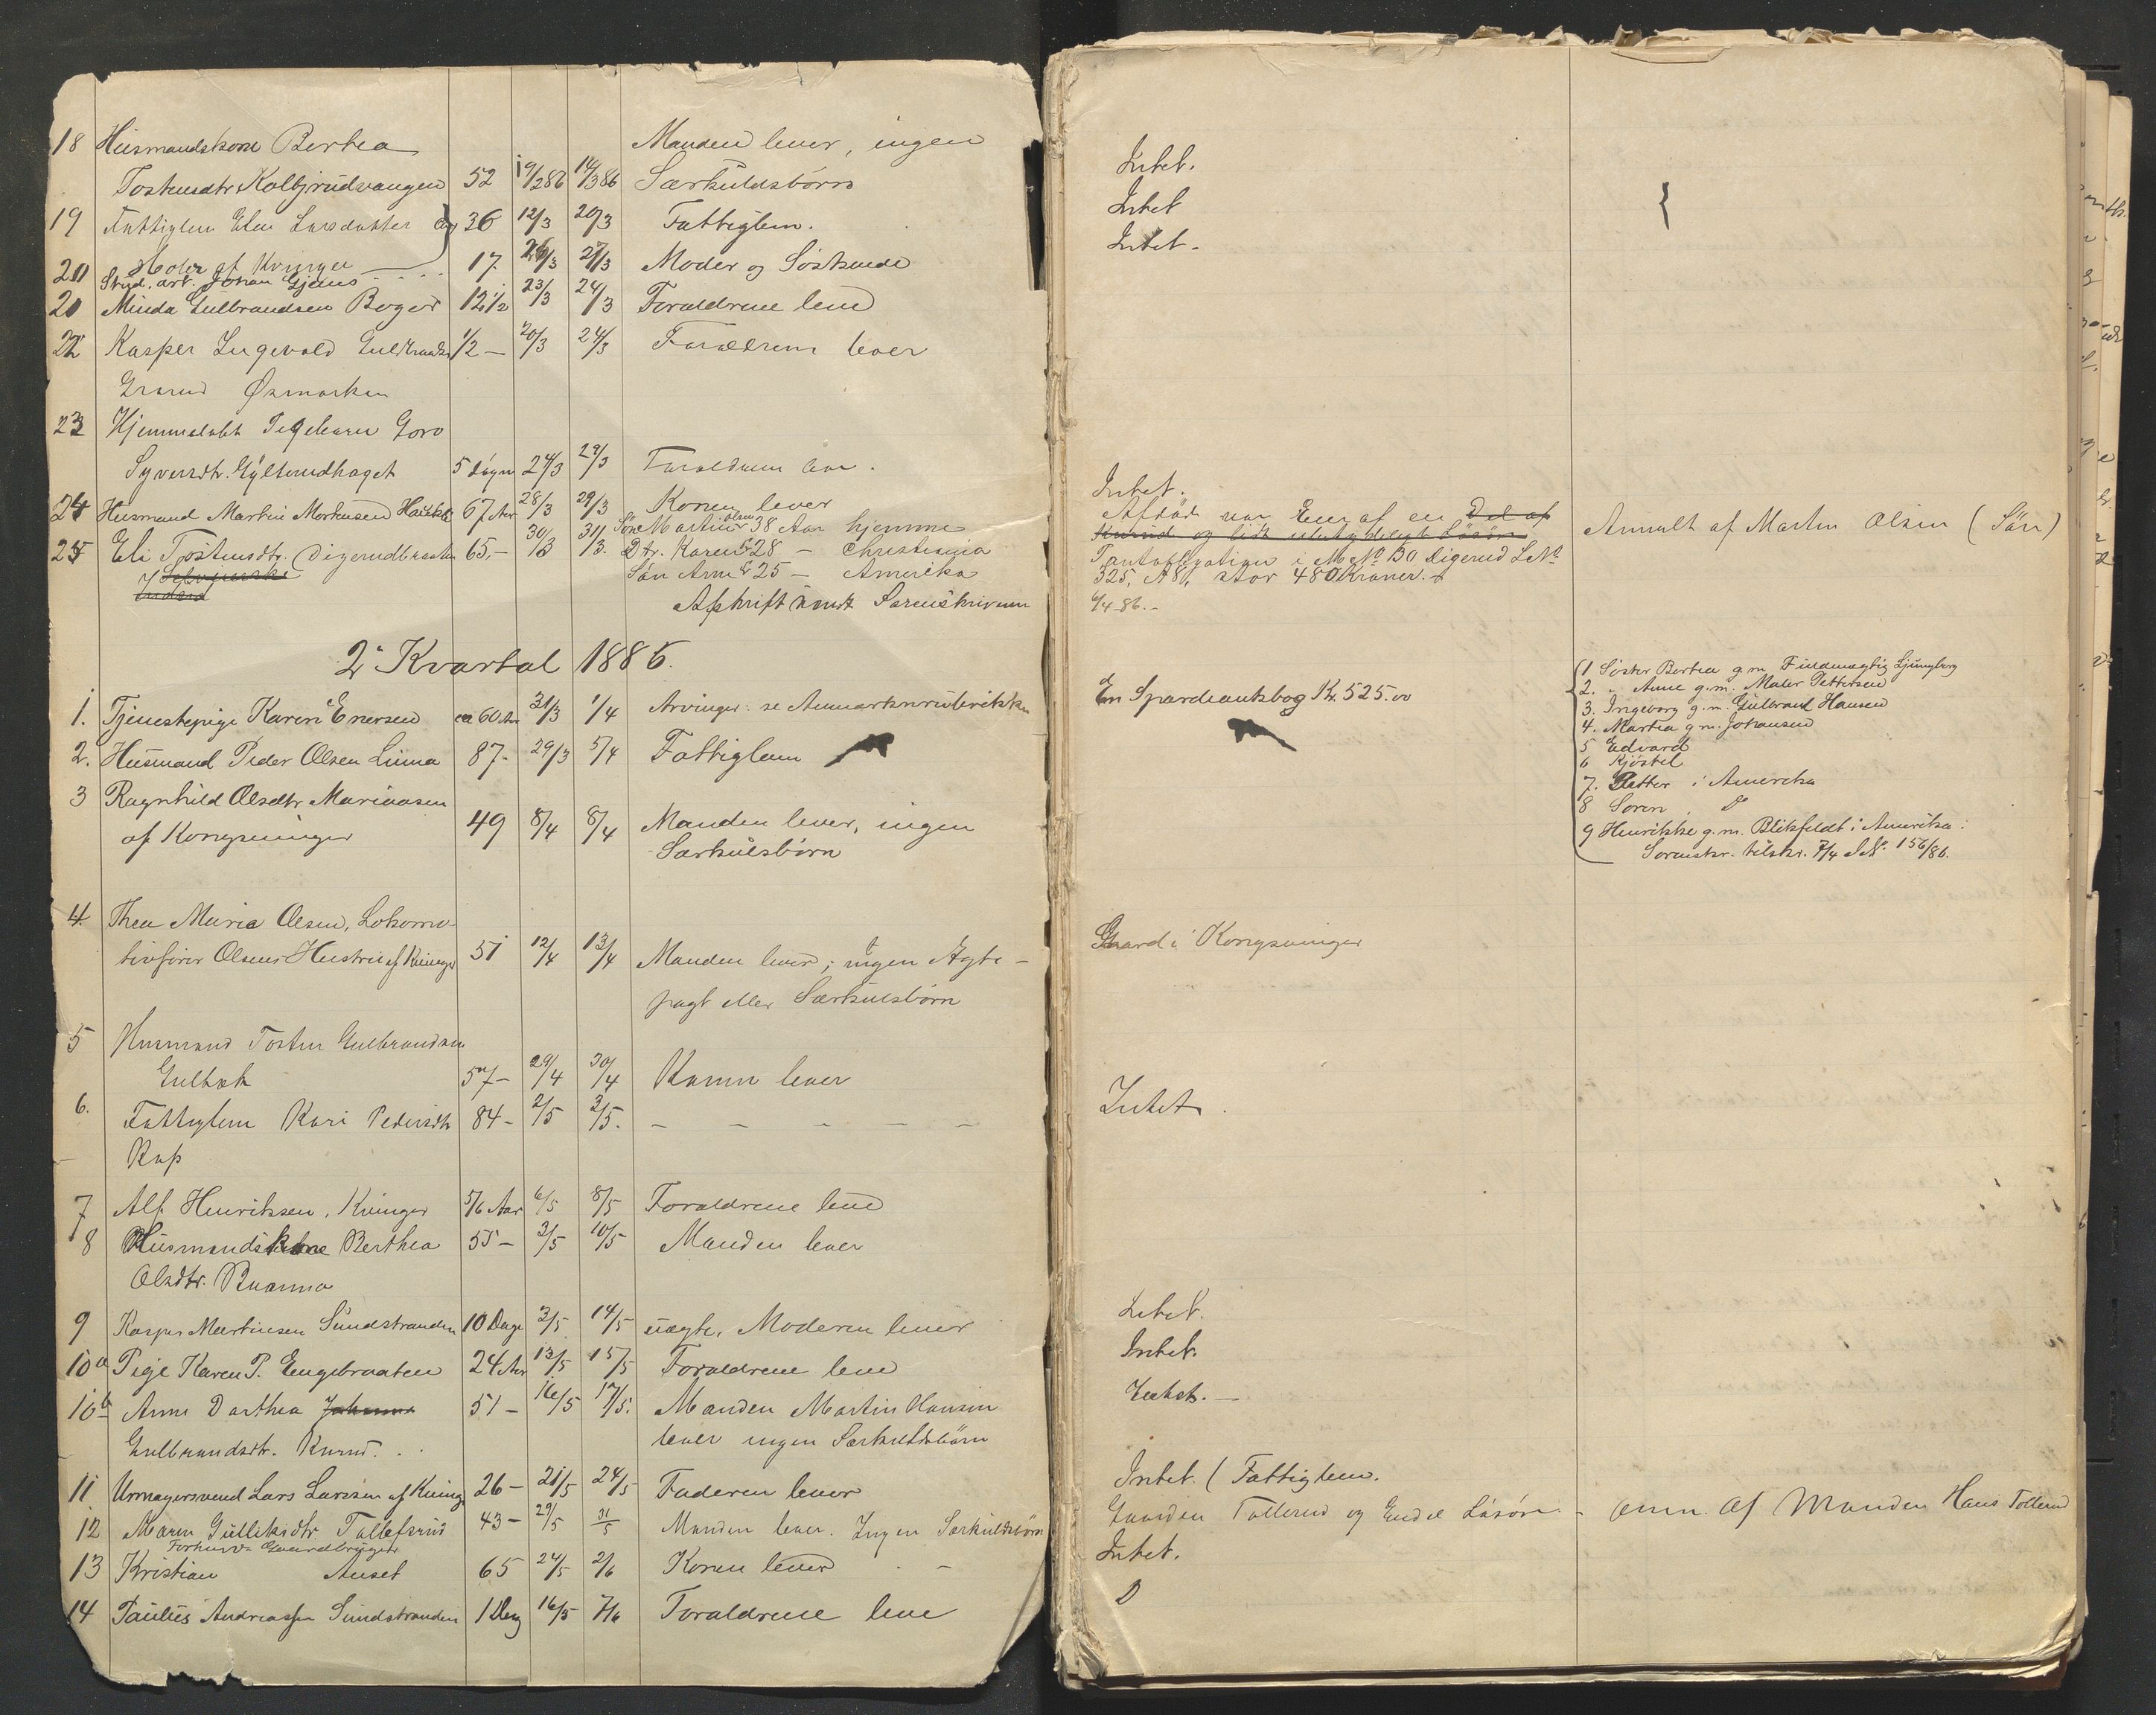 18 Husmandskone Bertea Manden lever, ingen
Tostensdtr. Kolbjrudvangen 52 19/2 86 14/3 86 Særkuldsbørn
19 Fattiglem Eline Larsdatter 36 12/3 20/3 Fattiglem.
Holer af Kvinger
21 Stud. art. Johan Gjems 17. 26/3 27/3 Moder og Søskende
20 Minda Gulbrandsen Roger 12 1/2 23/3 24/3 Forældrene leve
22 Kasper Ingevald Gulbrandsen 1/2 — 20/3 24/3 Forældrene lever
Grarud Øsmarken
23 Hjemmedøbt Pigebarn Goro
Syversdtr. Gylterudhaget 5 døgn 24/3 29/3 Forældrene leve.
24 Husmand Martin Mortensen 67 Aar 28/3 29/3 Konen lever
25 Eli Tostensdtr. Digerudbraaten 65.— 30/3 31/3. Søn Martin Olsen 38 Aar hjemme
Dtr. Karen 28 — Christiania
Søn Arne 25 — Amerika
Afskrift sendt Sorenskriveren
2. Kvartal 1886.
1. Tjenestepige Karen Enersen ca 60 Aar 31/3 1/4 Arvinger: se Anmærkn.rubrikken
2. Husmand Peder Olsen Lima 87.- 29/3 5/4 Fattiglem
3 Ragnhild Olsdtr. Mariaasen
af Kongsvinger 49 8/4 8/4 Manden lever, ingen
Særkulsbørn
4. Thea Maria Olsen, Lokomo-
tivfører Olsens Hustru af Kvinger 51 12/4 13/4 Manden lever; ingen Ægte-
pagt eller Særkulsbørn
5 Husmand Tosten Gulbrandsen
Gulbæk 57- 29/4 30/4 Konen lever
6. Fattiglem Kari Pedersdtr 84- 2/5 3/5. — — — — —
Rup
7 Alf Henriksen, Kvinger 5/6 Aar 6/5 8/5 Forældrene leve
8 Husmandskone Berthea 55— 3/5 10/5 Manden lever
Olsdtr. Ruanna
9 Kasper Martinsen Sundstranden 10 Dage 3/5 14/5 uægte, Moderen lever
10a Pige Karen P. Engebraaten 24 Aar 13/5 15/5 Forældrene leve
10b Anne Darthea 51— 16/5 17/5. Manden Martin Hansen
Gulbrandsdtr. Kurud. lever ingen Særkuldsbørn
11 Urmagersvend Lars Larssen af Kvinger 26— 21/5 24/5 Faderen lever
12 Maren Gulliksdtr. Tollefsrud 43— 29/5 31/5 Manden lever. Ingen Særkuldsbørn
Forhenv. Gaardbruger
13 Kristian Auset 65 24/5 2/6 Konen lever —
14 Paulus Andreassen Sundstranden 1 Dag 16/5 7/6 Forældrene leve
Intet.
Intet
Intet.
Intet.
Afdøde var Eier af en Del af
Kurud og lidt ubetydeligt Løsøre
Pantobligation i M.No. 130 Digerud L.No.
325, A 86, stor 480 Kroner.
6/4 86.—
Anmeldt af Martin Olsen (Søn)
En Sparebanksbog Kr. 525.00
1 Søster Bertea g.m. Fuldmægtig Ljungberg
2. " Anne g.m. Maler Pettersen
3. Ingeborg g.m. Gulbrand Hansen
4. Martea g.m. Johansen
5 Edvard
6 Kjøstel
7. Petter i Amerika
8 Soren Do
9 Henrikke g.m. Blikfeldt i Amerika.
Sorenskr. tilskr. 7/4 J.No. 156/86.
Gaard i Kongsvinger
Intet.
Intet.
Intet.
Intet.—
Intet. (Fattiglem.
Gaarden Tollerud og Endel Løsøre — anm. af Manden Hans Tollerud
Intet.
D